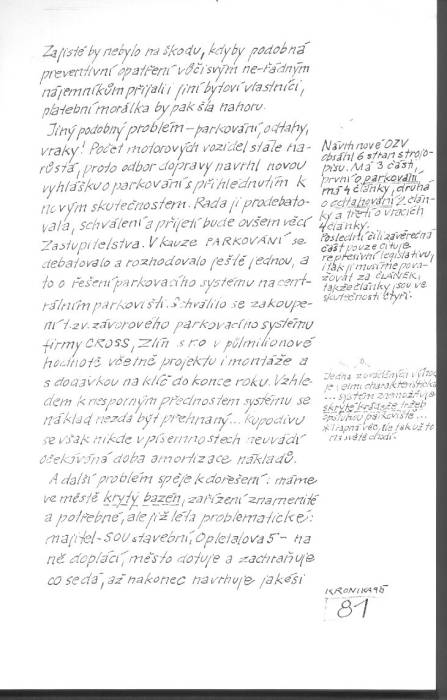 Zajisté by nebylo na škodu, kdyby podobná
preventivní opatření vůči svým ne-řádným
nájemníkům přijali i jiní bytoví vlastníci,
platební morálka by pak šla nahoru.
Jiný podobný problém – parkování, odtahy,
vraky! Počet motorových vozidel stále na-
růstá, proto odbor dopravy navrhl novou
vyhlášku o parkování s přihlédnutím k
novým skutečnostem. Rada ji prodebato-
vala, schválení a přijetí bude ovšem věcí
Zastupitelstva. V kauze PARKOVÁNÍ se
debatovalo a rozhodovalo ještě jednou, a
to o řešení parkovacího systému na cent-
rálním parkovišti. Schválilo se zakoupe-
ní t.zv. závorového parkovacího systému
firmy CROSS, Zlín s.r.o v půlmilionové
hodnotě včetně projektu i montáže a
s dodávkou na klíč do konce roku. Vzhle-
dem k nesporným přednostem systému se
náklad nezdá být přehnaný... kupodivu
se však nikde v písemnostech neuvádí
očekávaná doba amortizace nákladů.
A další problém spěje k dořešení: máme
ve městě krytý bazén, zařízení znamenité
a potřebné, ale již léta problematické:
majitel - SOU stavební, Opletalova 5 - na
ně doplácí, město dotuje a zachraňuje
co se dá, až nakonec navrhuje jakési
Návrh nové OZV
obsáhl 6 stran strojo-
pisu. Má 3 části,
první o parkování
má 4 články, druhá
o odtahování 2 člán-
ky a třetí o vracích
4 články.
Poslední čili závěrečná
část pouze cituje
represivní legislativu,
i tak ji musíme pova-
žovat za ČLÁNEK,
takže články jsou ve
skutečnosti čtyři.
Jedna z uváděných výhod
je velmi charakteristická
... systém znemožňuje
skryté krádeže tržeb
obsluhou parkoviště...
K trapná věc, ale jak už to
na světě chodí.
KRONIKA 95
81